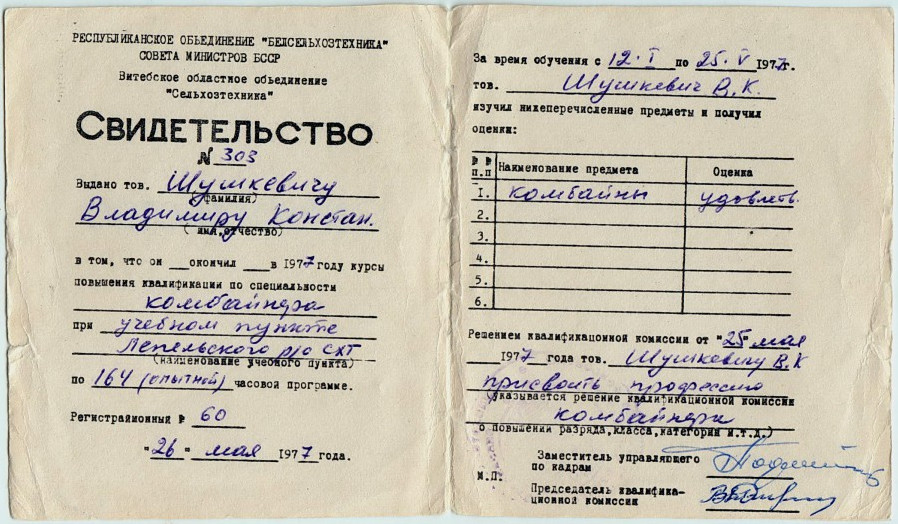 РЕСПУБЛИКАНСКОЕ ОБЬЕДИНЕНИЕ "БЕЛСЕЛЬХОЗТЕХНИКА"
СОВЕТА МИНИСТРОВ БССР
Витебское областное обьединение
"Сельхозтехника"
СВИДЕТЕЛЬСТВО
№ 303
Выдано тов. Шушкевичу
(фамилия)
Владимиру Констан.
(имя,отчество)
в том, что он окончил в 1977 году курсы
повышения квалификации по специальности
комбайнера
при учебном пункте
Лепельского р/о СХТ
(наименование учебного пункта)
по 164 (опытной) часовой программе.
Регистрайионный № 60
"26" мая 1977 года.
За время обучения с 12.I по 25.V 1977г.
тов. Шушкевич В.К.
изучил нижеперечисленные предметы и получил
оценки:
№ № п.п Наименование предмета Оценка
I. комбайны удовлетв.
2.
3.
4.
5.
6.
Решением квалификационной комиссии от "25" мая
1977 года тов. Шушкевичу В.К
присвоить профессию
(указывается решение квалификационной комиссии
комбайнера
о повышении разряда,класса,категории и.т.д.)
Заместитель управляющего
по кадрам
М.П.
Председатель квалифика-
ционной комиссии